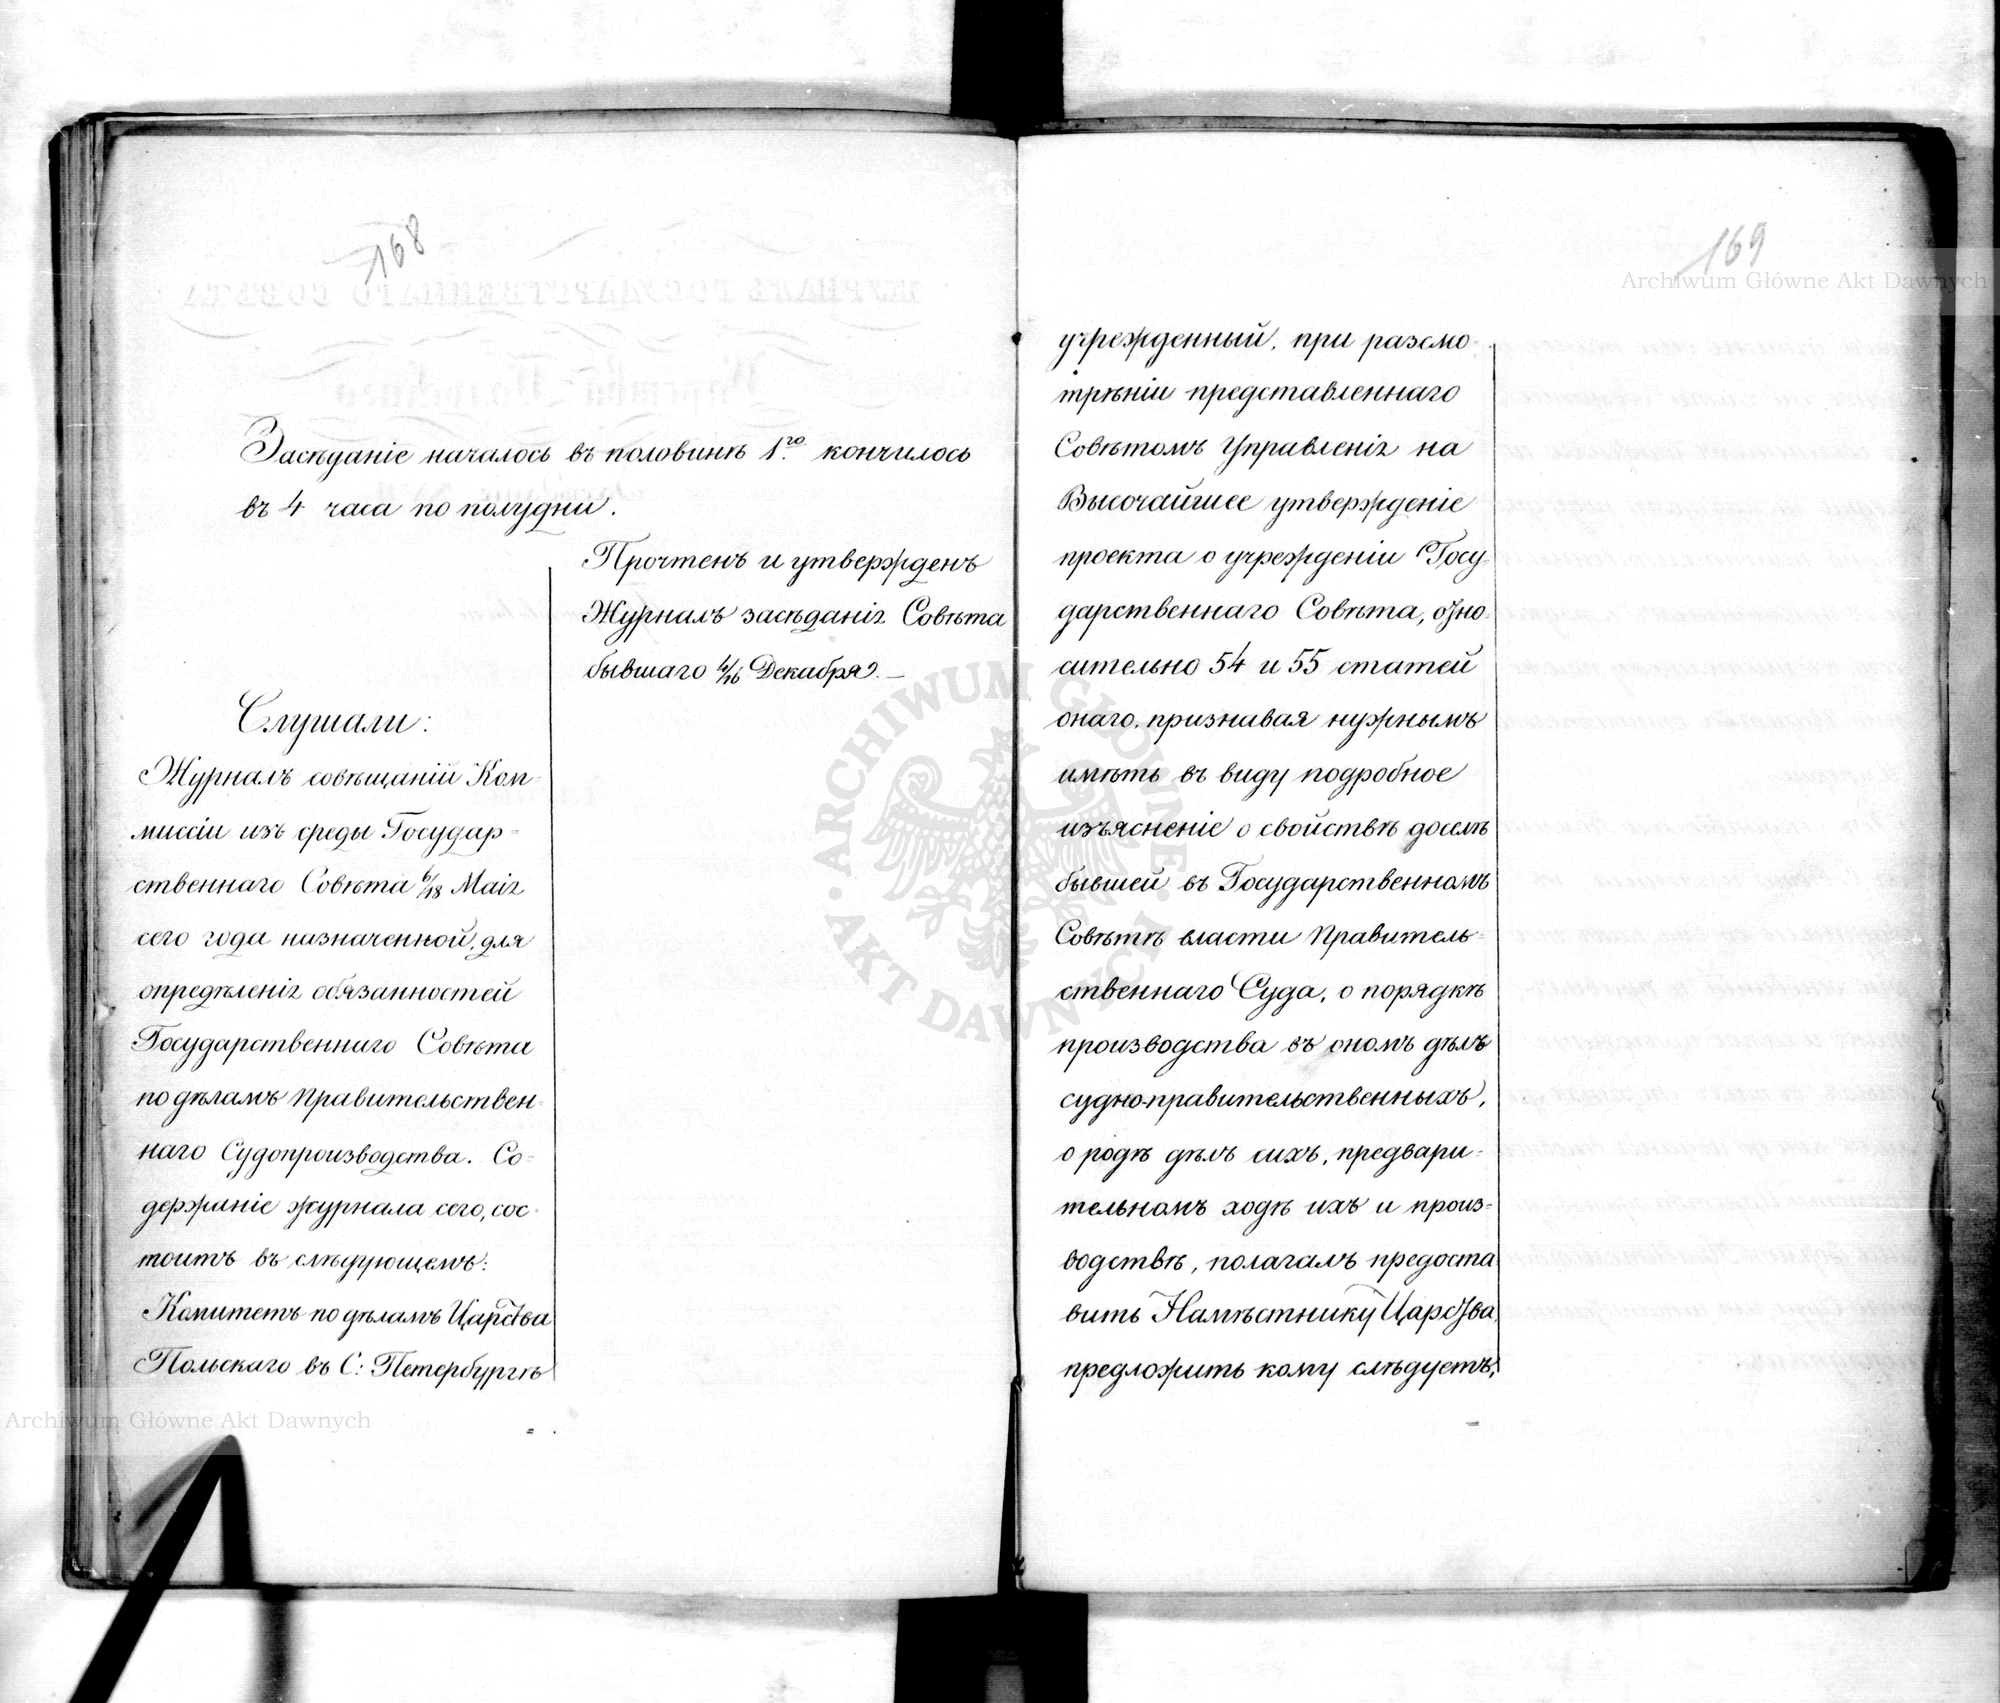 168
Засѣданіе началось въ половинѣ 1го кончилось
въ 4 часа по полудни.
Прочтенъ и утвержденъ
Журналъ засѣданія Совѣта
бывшаго 4/16 Декабря. —
Слушали:
Журналъ совѣщаній Ком-
миссіи изъ среды Государ-
ственнаго Совѣта 6/18 Маія
сего года назначенной, для
опредѣленія обязанностей
Государственнаго Совѣта
по дѣламъ Правительствен-
наго Судопроизводства. Со-
держаніе журнала сего, сос-
тоитъ въ слѣдующемъ:
Комитетъ по дѣламъ Царства
Польскаго въ С: Петербургѣ
169
учрежденный, при разсмо-
трѣніи представленнаго
Совѣтомъ Управленія на
Высочайшее утвержденіе
проекта о учрежденіи Госу-
дарственнаго Совѣта, отно-
сительно 54 и 55 статей
онаго, признавая нужнымъ
имѣть въ виду подробное
изъясненіе о свойствѣ доселѣ
бывшей въ Государственномъ
Совѣтѣ власти Правитель-
ственнаго Суда, о порядкѣ
производства въ ономъ дѣлъ
судно-правительственныхъ,
о родѣ дѣлъ сихъ, предвари-
тельномъ ходѣ ихъ и произ-
водствѣ, полагалъ предоста
вить Намѣстнику Царства
предложить кому слѣдуетъ,
Archiwum Główne Akt Dawnych
Archiwum Główne Akt Dawnych
ARCHIWUM GŁÓWNE · AKT DAWNYCH ·